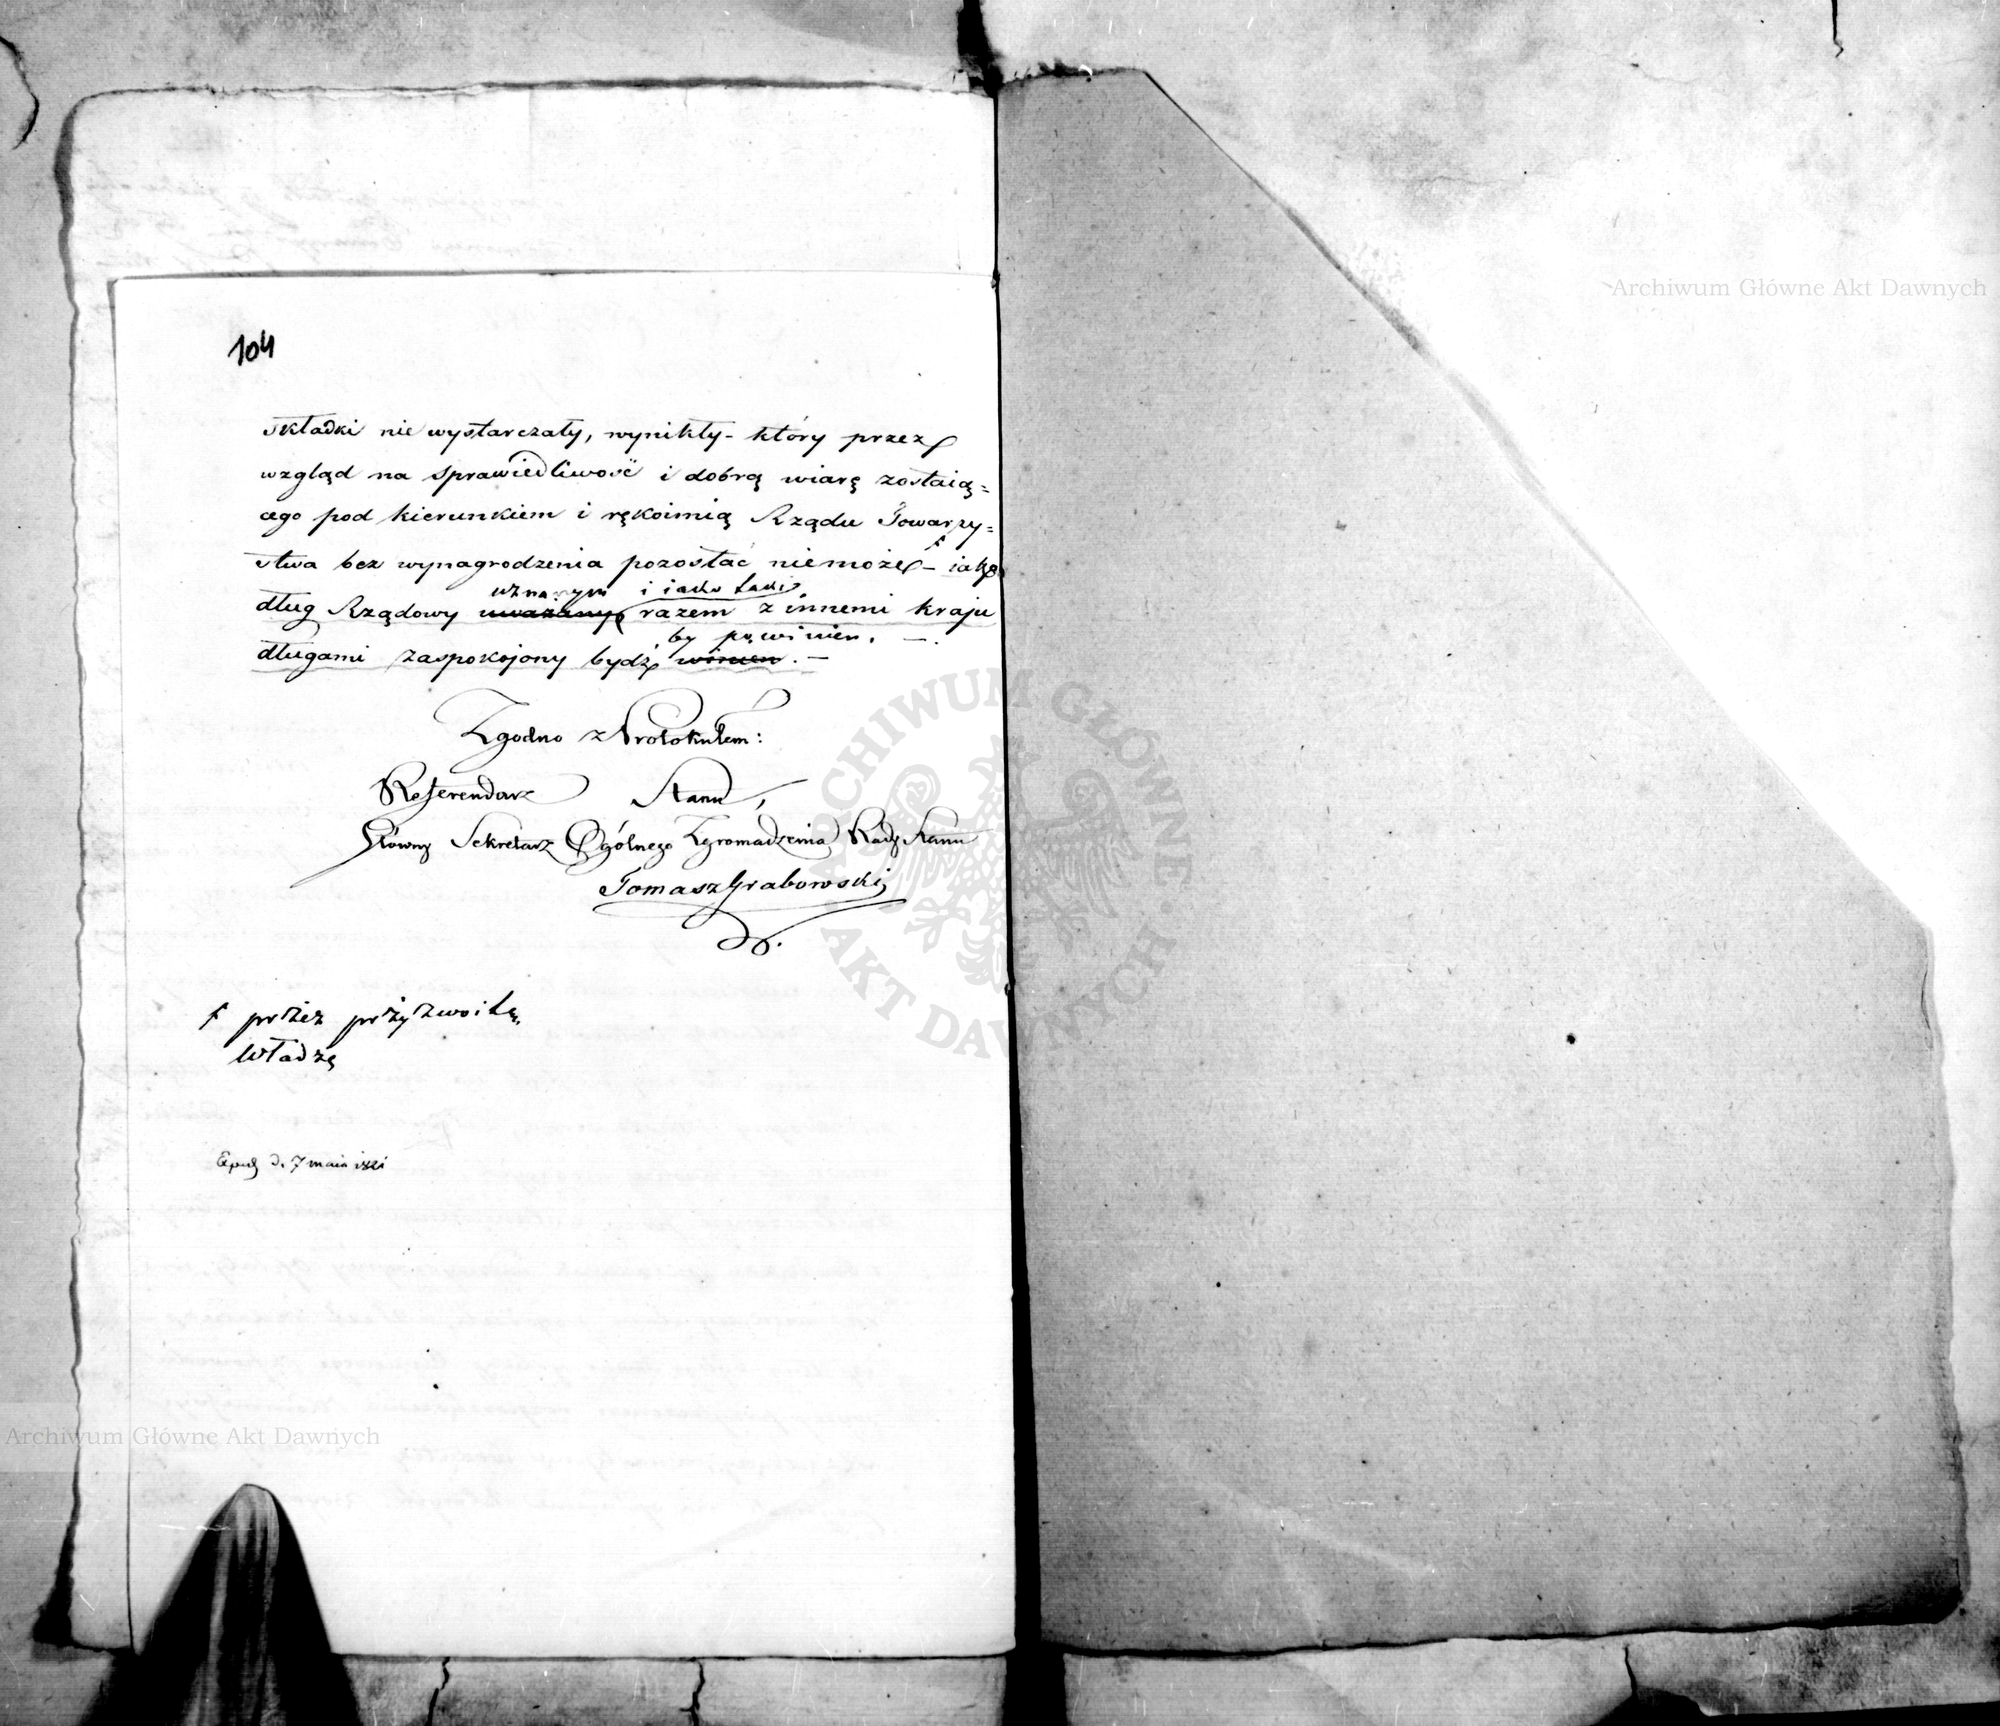 104
składki nie wystarczały, wynikły - który przez
wzgląd na sprawiedliwość i dobrą wiarę zostaią=
cego pod kierunkiem i rękoimią Rządu Towarzy=
stwa bez wynagrodzenia pozostać niemoże - iako
uznanym i iako taki
dług Rządowy uważany razem z innemi kraju
by powinien. -
długami zaspokojony bydź winien. -
Zgodno z Protokułem:
Referendarz Stanu,
Główny Sekretarz Ogólnego Zgromadzenia Rady Stanu
Tomasz Grabowski
przez przyzwoitą
Władzę
d. 7 maia 1821
Archiwum Główne Akt Dawnych
Archiwum Główne Akt Dawnych
ARCHIWUM GŁÓWNE AKT DAWNYCH